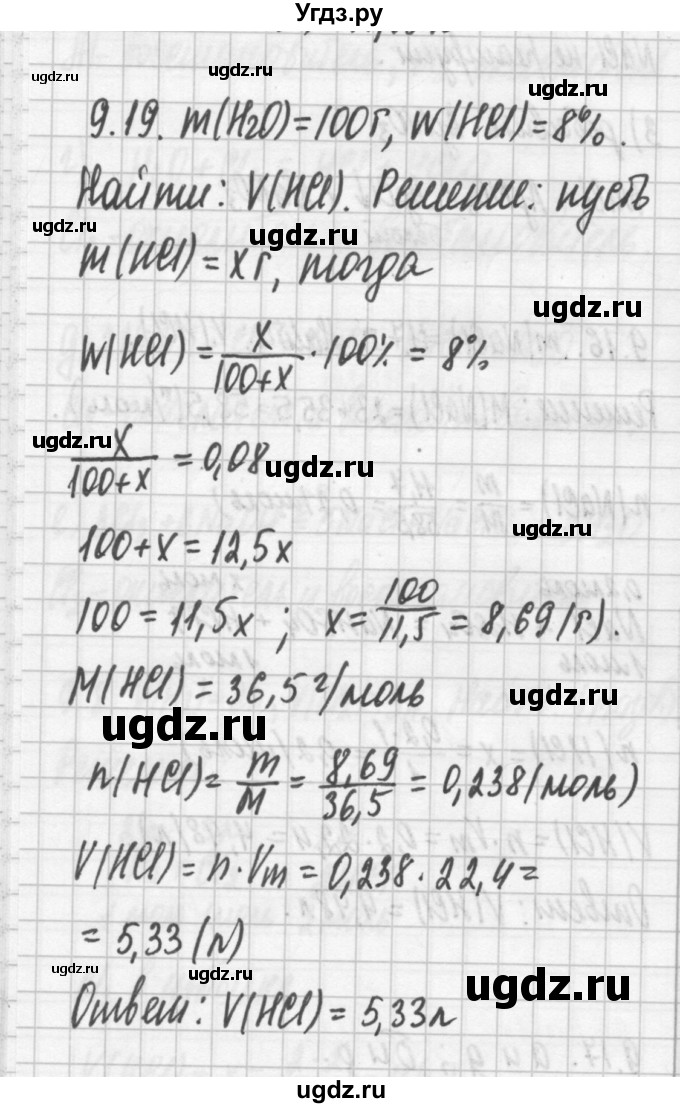 Угдз.ру
ugdz.ru ugdz.ru ugdz.ru
9.19. m(H2O)=100г, W(HCl)=8%.
Найти: V(HCl). Решение: пусть
ugdz.ru ugdz.ru
m(HCl)=xг, тогда
ugdz.ru
W(HCl) = x/(100+x) · 100% = 8%
ugdz.ru
x/(100+x) = 0,08
ugdz.ru
ugdz.ru
100+x=12,5x
100=11,5x; x=100/11,5=8,69(г).
M(HCl)=36,5г/моль
ugdz.ru
ugdz.ru
n(HCl)=m/M=8,69/36,5=0,238(моль)
V(HCl)=n·Vm=0,238·22,4=
=5,33(л)
ugdz.ru ugdz.ru ugdz.ru
Ответ: V(HCl)=5,33л
ugdz.ru